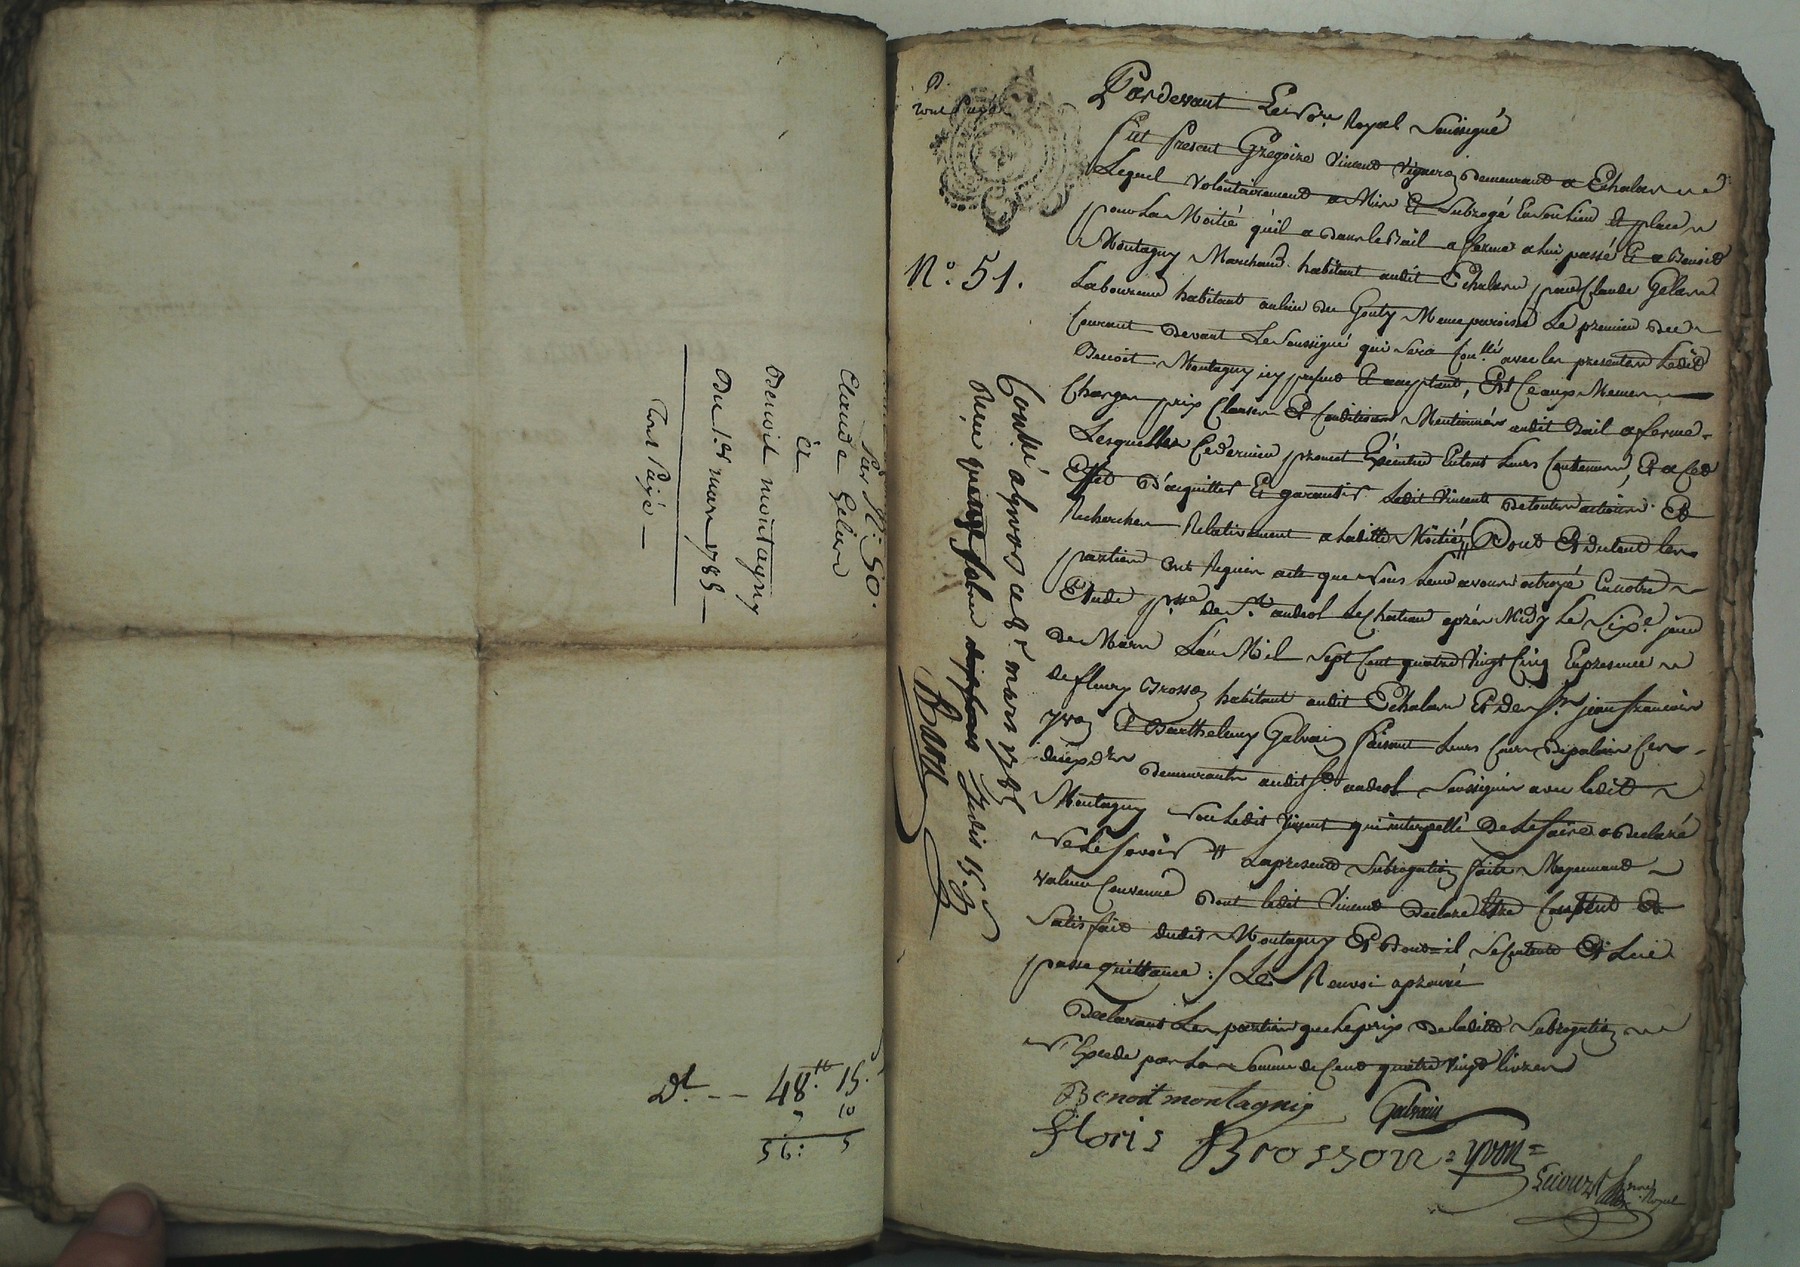 Par N.º 50.
Claude Gelas
à
Benoit montagny
Du 1.er mars 1785 —
Tout Payé —
D.t -- 48.tt 15.s
7 10
56: 5
Tout Payé
N.º 51.
Conllé a givors ce 8.e mars 1785
Reçu
Baron
Pardevant Le No.re Royal Soussigné
Fut Present Gregoire Vincent Vigneron demeurant a Echalas
Lequel volontairement a Mis Et Subrogé En Son Lieu Et place
pour La Moitié qu'il a Dans le Bail a ferme a Lui passé Et a Benoit
Montagny Marchand habitant audit Echalas par Claude Gelas
Laboureur habitant au lieu du Gouty Meme paroisse Le premier du
Courant Devant Le Soussigné qui Sera Con.llé avec les presentes Ledit
Benoit Montagny icy present Et acceptant, Et Ce aux Memes
Charges prix Clauses Et Conditions Mentionnés audit Bail a ferme
Lesquelles Ce dernier promet Executer En tous Leurs Contenus, Et a Cet
Effet D'acquitter Et garantir Ledit Vincent De toutes actions Et
Recherches Relativement a Laditte Moitié, Dont Et du tout les
parties ont Requis acte que Nous Leur avons octroyé En notre
Etude p.sse de S.t andeol Le Chateau aprés Midy Le Six.e jour
de Mars L'an Mil Sept Cent quatre Vingt Cinq En presence
de fleury Brosson habitant audit Echalas Et de S.r jean francois
yvon Et Barthelemy Galvain faisant Leurs Cours De palais Ces
demeurants audit S.t andeol Soussignés avec Ledit
Montagny Non Ledit Vincent qui interpellé De Le faire a Declaré
Ne Le Savoir # La presente Subrogation faite Moyennant
valeur Convenue Dont Ledit Vincent Declare Etre Content Et
Satisfait dudit Montagny Et Dont il Se Contente Et Lui
passe quittance :/ Le Renvoi aprouvé
Declarant Les parties que Le prix De Laditte Subrogation
N'Excede pas La Somme de Cent quatre Vingt livres
Benoit montagnis Galvain
floris Brosson = yvon =
Royal